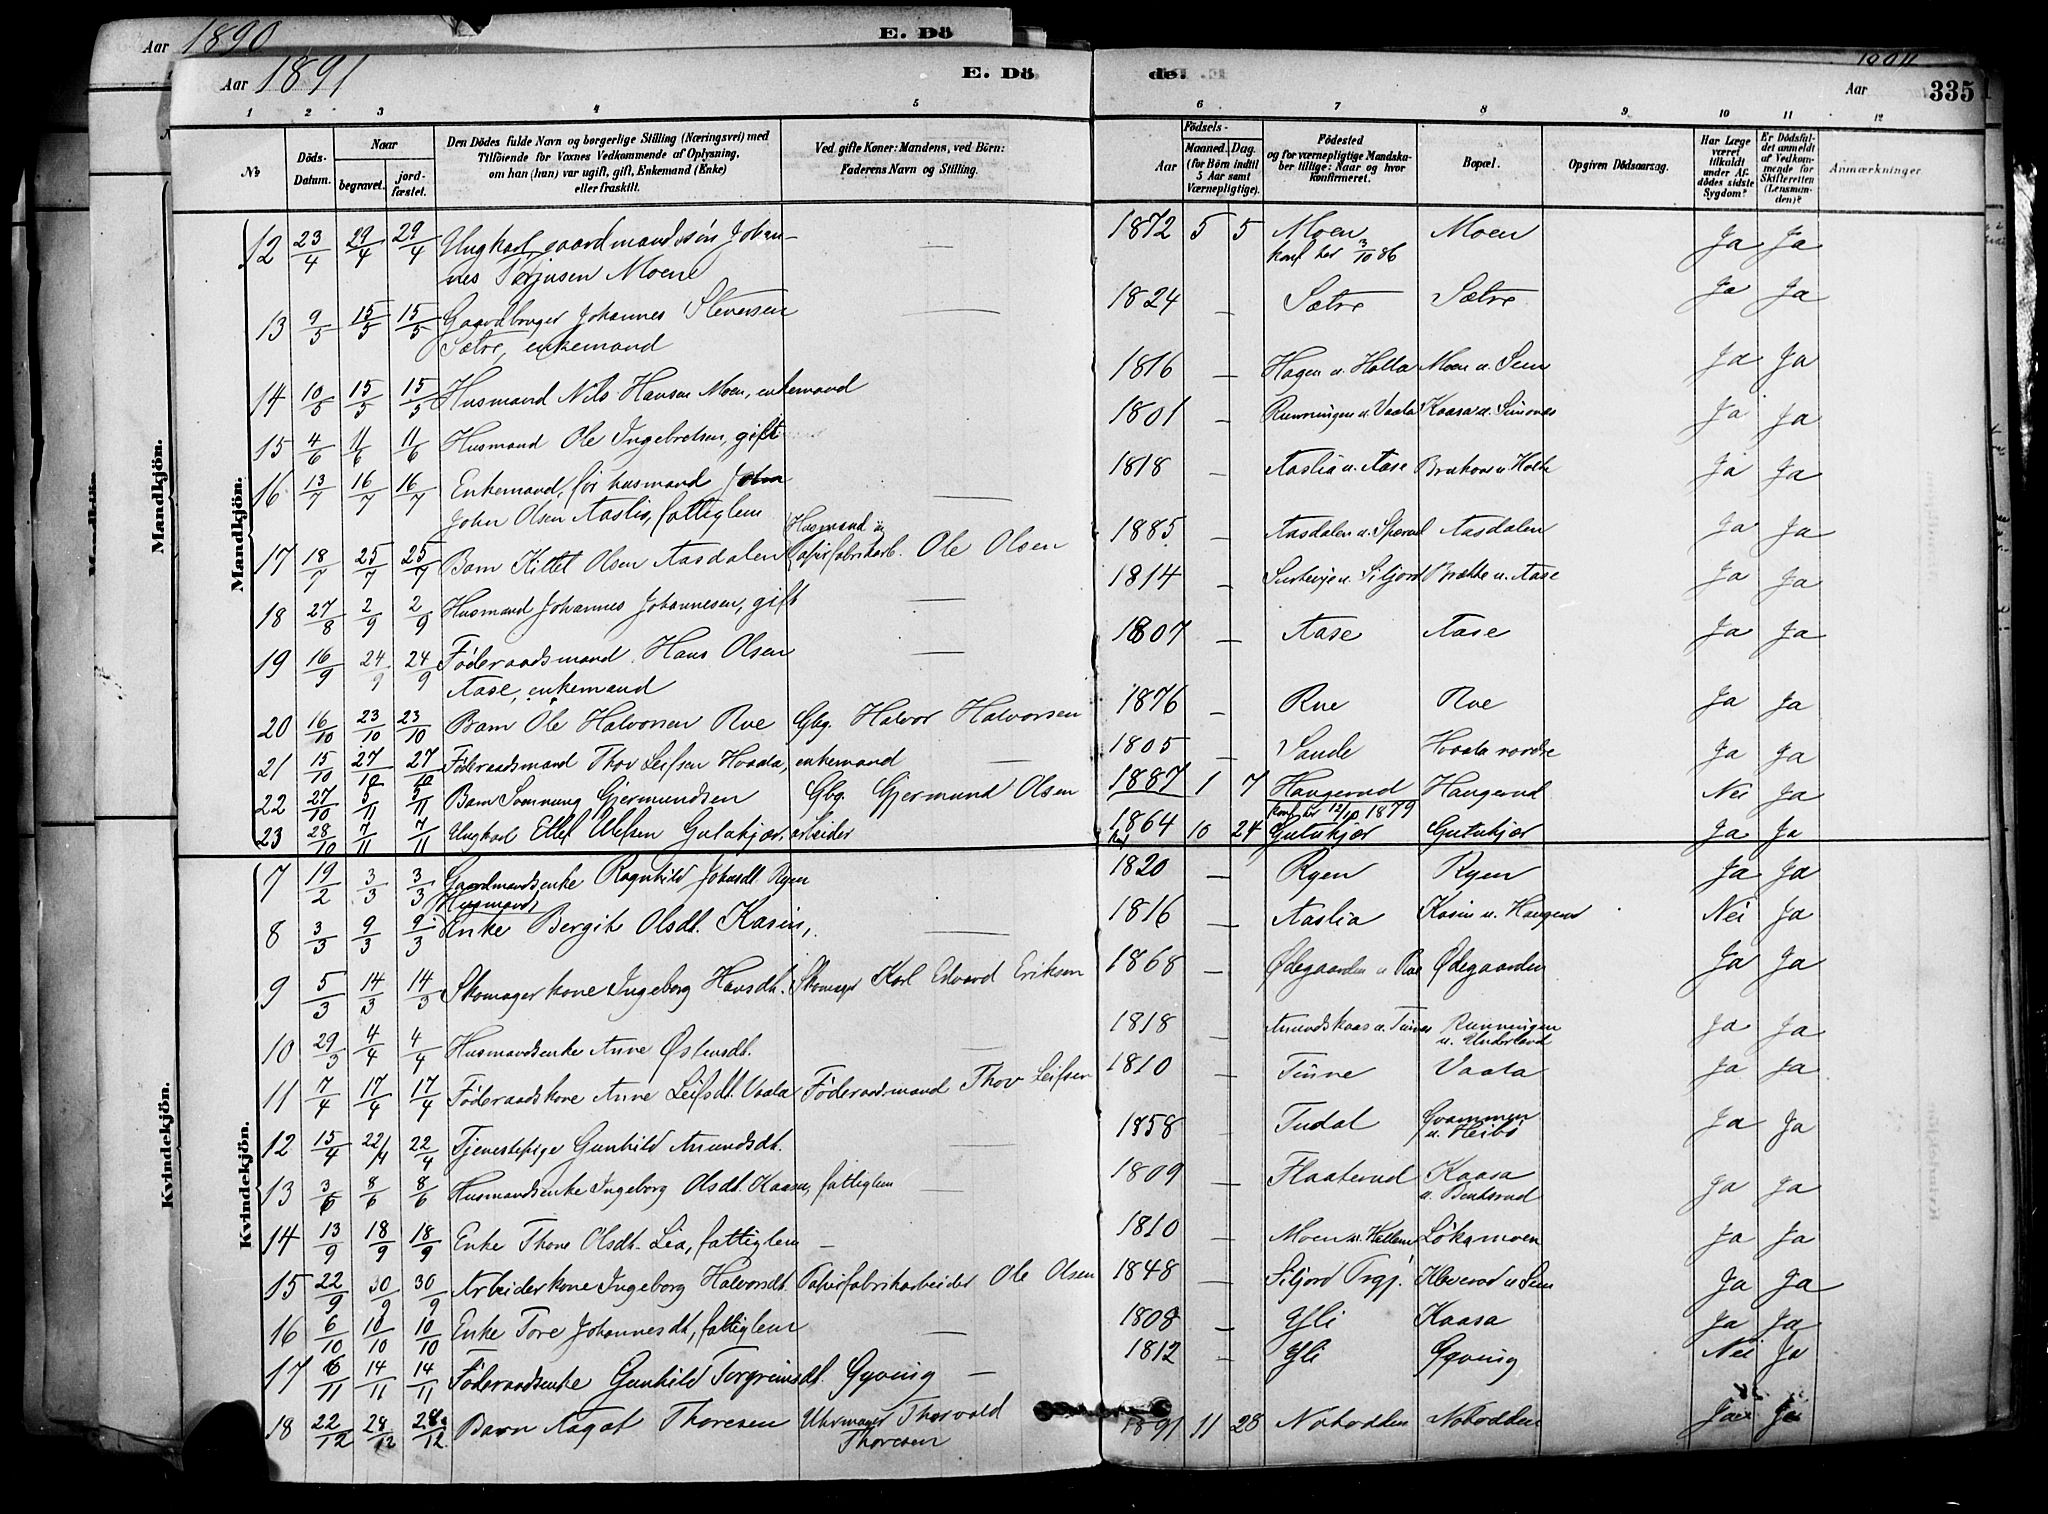 Aar 1890 E. Dö
Aar 1891 E. Dö de. Aar 335
1 2 3 4 5 6 7 8 9 10 11 12
No Döds-Datum. Naar begravet. jordfæstet. Den Dödes fulde Navn og borgerlige Stilling (Næringsvei) med Tilföiende for Voxnes Vedkommende af Oplysning, om han (hun) var ugift, gift, Enkemand (Enke) eller fraskilt. Ved gifte Koner: Mandens, ved Börn: Faderens Navn og Stilling. Födsels- Aar Maaned. Dag. (for Börn indtil 5 Aar samt Værnepligtige). Födested og for værnepligtige Mandskaber tillige: Naar og hvor konfirmeret. Bopæl. Opgiven Dödsaarsag. Har Læge været tilkaldt under Afdödes sidste Sygdom? Er Dödsfaldet anmeldt af Vedkommende for Skifteretten (Lensmanden)? Anmærkninger
Mandkjön.
12 23/4 29/4 29/4 Ungkarl, gaardmandssön Johan- — 1872 5 5 Moen Moen Ja Ja
nes Terjusen Moene konf her 3/10 86
13 9/5 15/5 15/5 Gaardbruger Johannes Stevensen — 1824 — Sætre Sætre Ja Ja
Sætre, enkemand
14 10/5 15/5 15/5 Husmand Nils Hansen Moen, enkemand 1816 — Hagen u. Holla Moen u. Sem Ja Ja
15 4/6 11/6 11/6 Husmand Ole Ingebretsen, gift 1801 — Runningen u. Vaala Kaasa u. Ja Ja
16 13/7 16/7 16/7 Enkemand, för husmand — 1818 — Aaslia u. Aase Ja Ja
John Olsen Aaslia, fattiglem
17 18/7 25/7 25/7 Barn Kittel Olsen Aasdalen Husmand og Papirfabrikarb. Ole Olsen 1885 — Aasdalen u. Aasdalen Ja Ja
18 27/8 2/9 2/9 Husmand Johannes Johannesen, gift — 1814 — u. Siljord Brække u. Aase Ja Ja
19 16/9 24/9 24/9 Föderaadsmand Hans Olsen — 1807 — Aase Aase Ja Ja
Aase, enkemand
20 16/10 23/10 23/10 Barn Ole Halvorsen Rue Gbg. Halvor Halvorsen 1876 — Rue Rue Ja Ja
21 15/10 27/10 27/10 Föderaadsmand Thov Leifsen Hvaala, enkemand — 1805 — Sande Hvaala nordre Ja Ja
22 27/10 5/11 5/11 Barn Gjermundsen Gbg. Gjermund Olsen 1887 1 7 Haugerud Haugerud Nei Ja
23 28/10 7/11 7/11 Ungkarl Ellef Gutukjær, arbeider 1864 10 24 konf her 12/10 1879 Gutukjær Gutukjær Ja Ja
Kvindekjön.
7 19/2 3/3 3/3 Gaardmandsenke Ragnhild Johnsdt. Ryen 1820 — Ryen Ryen Ja Ja
8 3/3 9/3 9/3 (Husmands) Enke Bergit Olsdt. Kasin, — 1816 — Aaslia Kasin u. Haugerud Nei Ja
9 5/3 14/3 14/3 Skomagerkone Ingeborg Hansdt. Skomager Karl Edvard Eriksen 1868 — Ødegaarden u Rue Ødegaarden Ja Ja
10 29/3 4/4 4/4 Husmandsenke Anne Østensdt. — 1818 — Amundskaas u. Tinnes Runningen u. Underland Ja Ja
11 7/4 17/4 17/4 Föderaadskone Anne Leifsdt. Vaala Föderaadsmand Thov Leifsen 1810 — Tinne Vaala Ja Ja
12 15/4 22/4 22/4 Tjenestepige Gunhild Amundsdt. — 1858 — Tudal Qvammen u. Heibö Ja Ja
13 3/6 8/6 8/6 Husmandsenke Ingeborg Olsdt. Kaasa, fattiglem — 1809 — Flaaterud Kaasa u. Ja Ja
14 13/9 18/9 18/9 Enke Thone Olsdt. Lia, fattiglem — 1810 — Moen u. Hellem Löksmoen Ja Ja
15 22/9 30/9 30/9 Arbeiderkone Ingeborg Halvorsdt. Papirfabrikarbeider Ole Olsen 1848 — Siljord Prgj. Kleverud u Sem Ja Ja
16 6/10 10/10 10/10 Enke Tore Johannesdt., fattiglem — 1808 — Yli Kaasa Ja Ja
17 6/11 14/11 14/11 Föderaadsenke Gunhild Torgrimsdt. Gyving — 1812 — Yli Gyving Nei Ja
18 22/12 28/12 28/12 Barn Aagot Thoresen Uhrmager Thorvald Thoresen 1891 11 28 Notodden Notodden Ja Ja